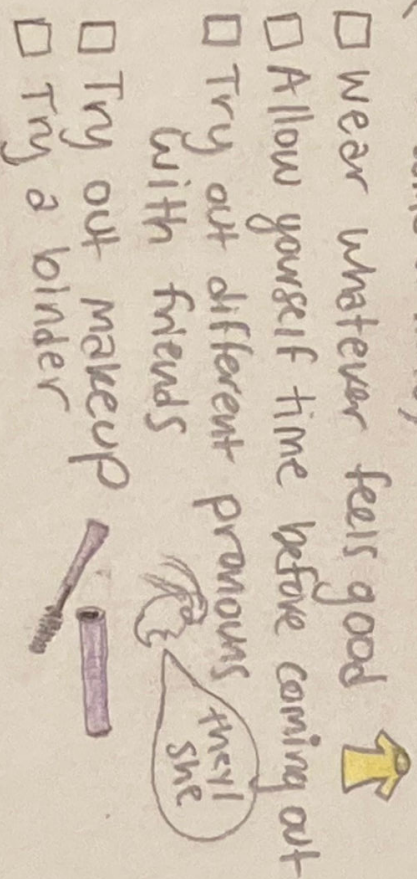 wear whatever feels good
Allow yourself time before coming out
Try out different pronouns
with friends
they/
she
Try out makeup
Try a binder